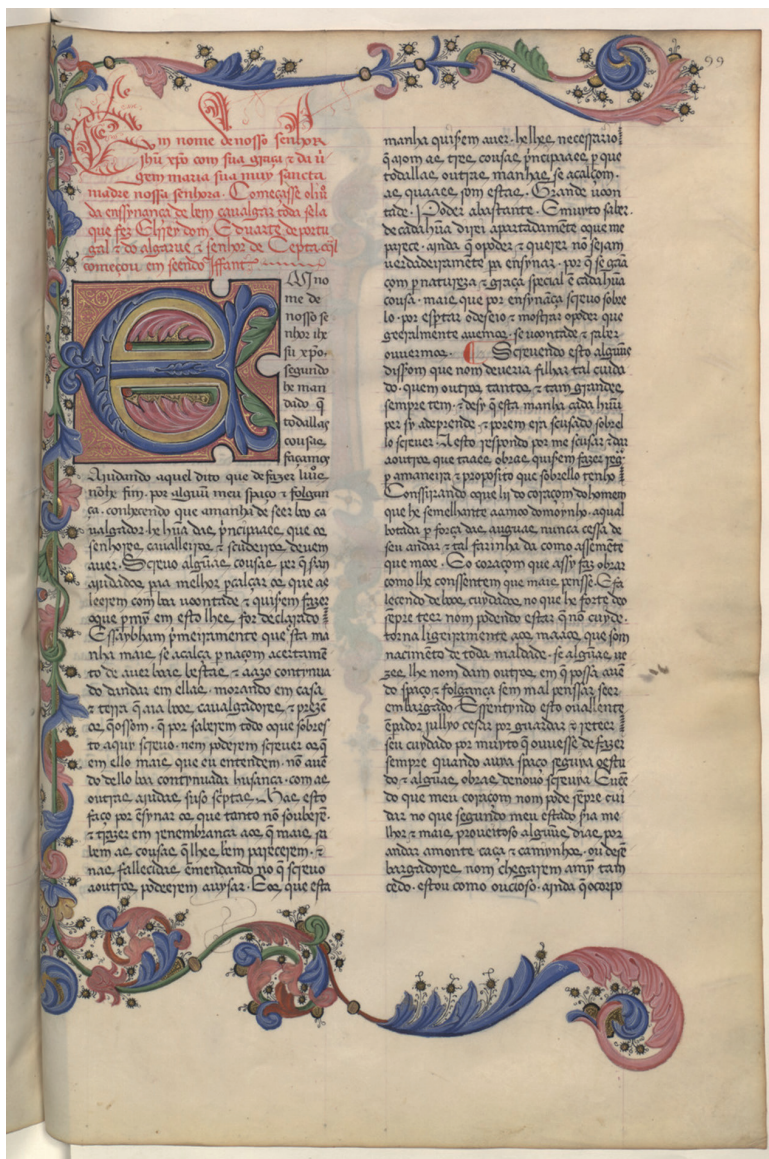 99
Em nome de nosso senhor
Jhũ xp̃o com sua graça ⁊ da ũ
gem maria sua muy sancta
madre nossa senhora. Começasse oliũ
da enssynança de bem caualgar toda sela
que fez Elrrey dom Eduarte de portu
gal ⁊ do algarue ⁊ senhor de Cepta oql̃
começou em seendo Iffante
EM no
me de
nosso se
nhor ihe
su xp̃o.
segundo
he man
dado q̃
todallas
cousas
façamos
Ajudando aquel dito que de fazer liuos
nõ he fim. por alguũ meu spaço ⁊ folgan
ça. conhecendo que a manha de seer boo ca
ualgador he hũa das p̃ncipaaes que os
senhores caualleiros ⁊ scudeiros deuem
auer. Screuo algũas cousas per q̃ seram
ajudados pera melhor percalçar os que as
leerem com boa uoontade ⁊ quisem fazer
o que p̃ my em esto lhes for declarado
E ssaybham p̃meiramente que sta ma
nha mais se acalça p̃ naçom acertamẽ
to de auer boas bestas ⁊ aazo continua
do dandar em ellas. morando em casa
⁊ terra q̃ aia boos caualgadores ⁊ prezẽ
os q̃ o ssom. q̃ por saberem todo o que sobres
to aquy screuo. nem poderem screuer os q̃
em ello mais que eu entendem. nõ auẽ
do dello boa continuada husança. com as
outras ajudas suso scp̃tas. Mas esto
faço por ẽsynar os que tanto nõ souberẽ.
⁊ trazer em renembrança aos q̃ mais sa
bem as cousas q̃ lhes bem parecerem. ⁊
nas fallecidas emendando no q̃ screuo
a outros poderem auysar. E os que esta
manha quisem auer. he lhes necessario
q̃ aiom as tres cousas p̃ncipaaes p̃ que
todallas outras manhas se acalçom.
as quaaes som estas. Grande uoon
tade. Poder abastante. E muyto saber.
de cada hũa direi apartadamẽte o que me
parece. ainda q̃ o poder ⁊ querer nõ seiam
uerdadeiramente pa ensynar. por q̃ se gãa
çom p̃ natureza ⁊ graça special ẽ cada hũa
cousa. mais que por ensynãça screuo sobre
lo. por espertar o deseio ⁊ mostrar o poder que
geeralmente auemos. se uoontade ⁊ saber
ouuermos. Screuendo esto alguũs
dissrom que nom deueria filhar tal cuida
do. quem outros tantos ⁊ tam grandes
sempre tem. ⁊ desy q̃ esta manha cada huũ
per sy a deprende. ⁊ porem era scusado sobrel
lo screuer. A esto respondo por me scusar. ⁊ dar
a outros que taaes obras quisem fazer regra
p̃ a maneira ⁊ proposito que sobrello tenho
Conssirando o que li do coraçom do homem
que he semelhante aa moo do moynho. a qual
botada p̃ força das auguas nunca cessa de
seu andar ⁊ tal farinha da como a ssemẽte
que moe. E o coraçom que assy faz obrar
como lhe conssentem que mais pensse. E fa
lecendo de boos cuydados no que he forte do
sepre teer nom podendo estar q̃ nõ cuyde.
torna ligeiramente aos maaos que som
nacimẽto de toda maldade. se algũas ue
zes lhe nom dam outros. em q̃ possa auẽ
do spaço ⁊ folgança sem mal penssar seer
embargado. E ssentyndo esto o uallente
ẽpador jullyo cesar por guardar ⁊ reteer
seu cuydado por muyto q̃ ouuesse de fazer
sempre quando auya spaço seguya o estu
do ⁊ algũas obras de nouo screuya. E ueẽ
do que meu coraçom nom pode sẽpre cui
dar no que segundo meu estado s̃ia me
lhor ⁊ mais proueitoso alguũs dias por
andar a monte caça ⁊ camynhos. ou desẽ
bargadores nom chegarem a my tam
cedo. estou como oucioso. ainda q̃ o corpo